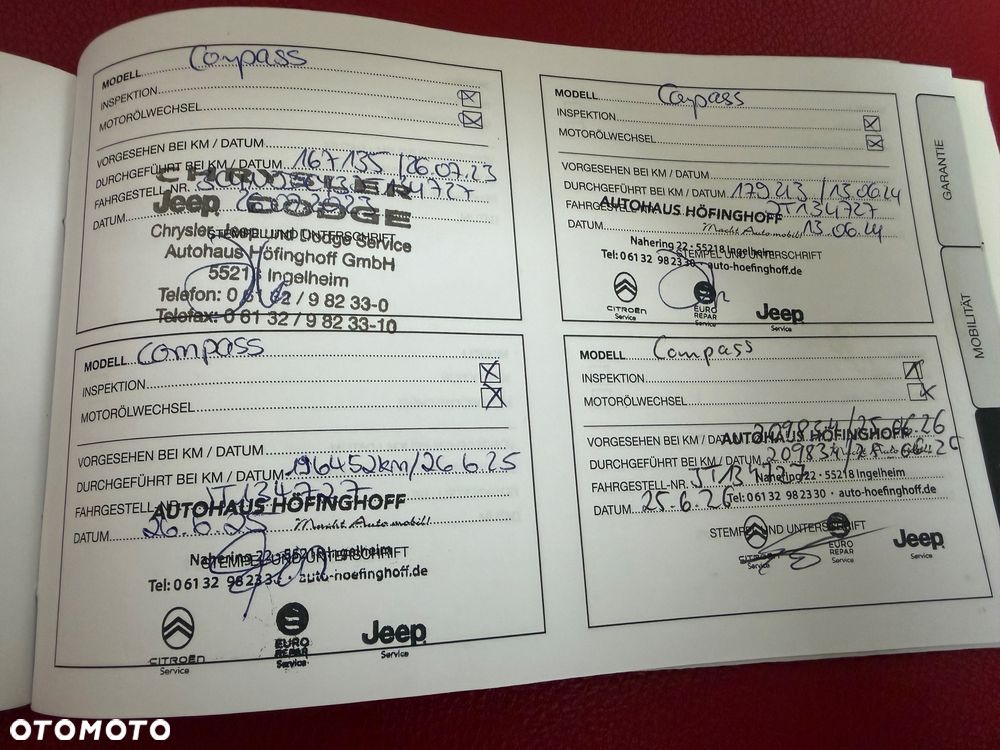 MODELL Compass
INSPEKTION
MOTORÖLWECHSEL
VORGESEHEN BEI KM / DATUM
DURCHGEFÜHRT BEI KM / DATUM 167135 / 26.07.23
FAHRGESTELL-NR.
CHRYSLER
Jeep DODGE
DATUM
Chrysler, Jeep und Dodge Service
STEMPEL UND UNTERSCHRIFT
Autohaus Höfinghoff GmbH
55218 Ingelheim
Telefon: 0 61 32 / 9 82 33-0
Telefax: 0 61 32 / 9 82 33-10
MODELL Compass
INSPEKTION
MOTORÖLWECHSEL
VORGESEHEN BEI KM / DATUM
DURCHGEFÜHRT BEI KM / DATUM 179213 / 13.06.24
FAHRGESTELL-NR. JT134727
AUTOHAUS HÖFINGHOFF
Macht Automobil!
DATUM 13.06.24
Nahering 22 · 55218 Ingelheim
STEMPEL UND UNTERSCHRIFT
Tel: 0 61 32 98 23 30 · auto-hoefinghoff.de
CITROËN Service
EURO REPAR Service
Jeep Service
MODELL Compass
INSPEKTION
MOTORÖLWECHSEL
VORGESEHEN BEI KM / DATUM
DURCHGEFÜHRT BEI KM / DATUM 196452km/26.6.25
FAHRGESTELL-NR. JT134727
AUTOHAUS HÖFINGHOFF
Macht Automobil!
DATUM 26.6.25
Nahering 22 · 55218 Ingelheim
STEMPEL UND UNTERSCHRIFT
Tel: 0 61 32 98 23 30 · auto-hoefinghoff.de
CITROËN Service
EURO REPAR Service
Jeep Service
MODELL Compass
INSPEKTION
MOTORÖLWECHSEL
VORGESEHEN BEI KM / DATUM 209834/25.06.26
AUTOHAUS HÖFINGHOFF
DURCHGEFÜHRT BEI KM / DATUM 209834
FAHRGESTELL-NR. JT134727
Nahering 22 · 55218 Ingelheim
DATUM 25.6.26
Tel: 0 61 32 98 23 30 · auto-hoefinghoff.de
STEMPEL UND UNTERSCHRIFT
CITROËN Service
EURO REPAR Service
Jeep Service
GARANTIE
MOBILITÄT
OTOMOTO